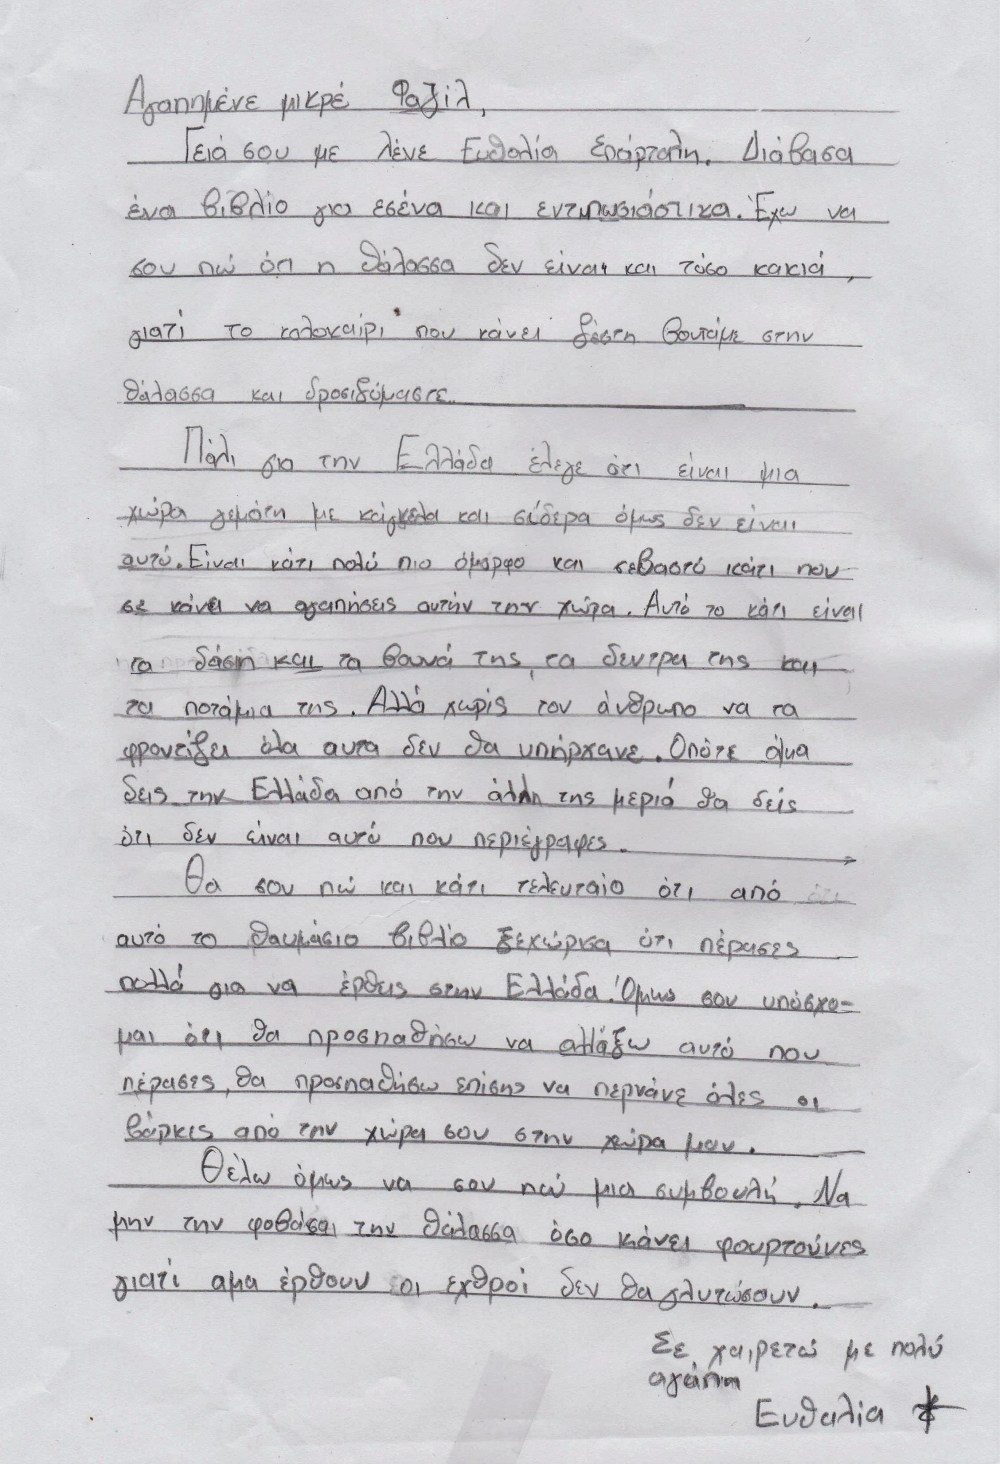 Αγαπημένε μικρέ Φαζίλ,
Γειά σου με λένε Ευθαλία Σπάρταλη. Διάβασα
ένα βιβλίο για εσένα και εντυπωσιάστικα. Έχω να
σου πώ ότι η θάλασσα δεν είναι και τόσο κακιά,
γιατί το καλοκαίρι που κάνει ζέστη βουτάμε στην
θάλασσα και δροσιζόμαστε.
Πάλι για την Ελλάδα έλεγε ότι είναι μια
χώρα γεμάτη με κάγκελα και σίδερα όμως δεν είναι
αυτό. Είναι κάτι πολύ πιο όμορφο και σεβαστό κάτι που
σε κάνει να αγαπήσεις αυτήν την χώρα. Αυτό το κάτι είναι
τα δάση και τα βουνά της, τα δεντρα της και
τα ποτάμια της. Αλλά χωρίς τον άνθρωπο να τα
φροντίζει όλα αυτα δεν θα υπήρχανε. Οπότε άμα
δεις την Ελλάδα από την άλλη της μεριά θα δείς
ότι δεν είναι αυτό που περιέγραφες.
Θα σου πώ και κάτι τελευταίο ότι από
αυτό το θαυμάσιο βιβλίο ξεχώρισα ότι πέρασες
πολλά για να έρθεις στην Ελλάδα. Όμως σου υπόσχο-
μαι ότι θα προσπαθήσω να αλλάξω αυτό που
πέρασες, θα προσπαθήσω επίσης να περνάνε όλες οι
βάρκες από την χώρα σου στην χώρα μου.
Θέλω όμως να σου πώ μια συμβουλή. Να
μην την φοβάσαι την θάλασσα όσο κάνει φουρτούνες
γιατί αμα έρθουν οι εχθροί δεν θα γλυτώσουν.
Σε χαιρετώ με πολύ
αγάπη
Ευθαλία